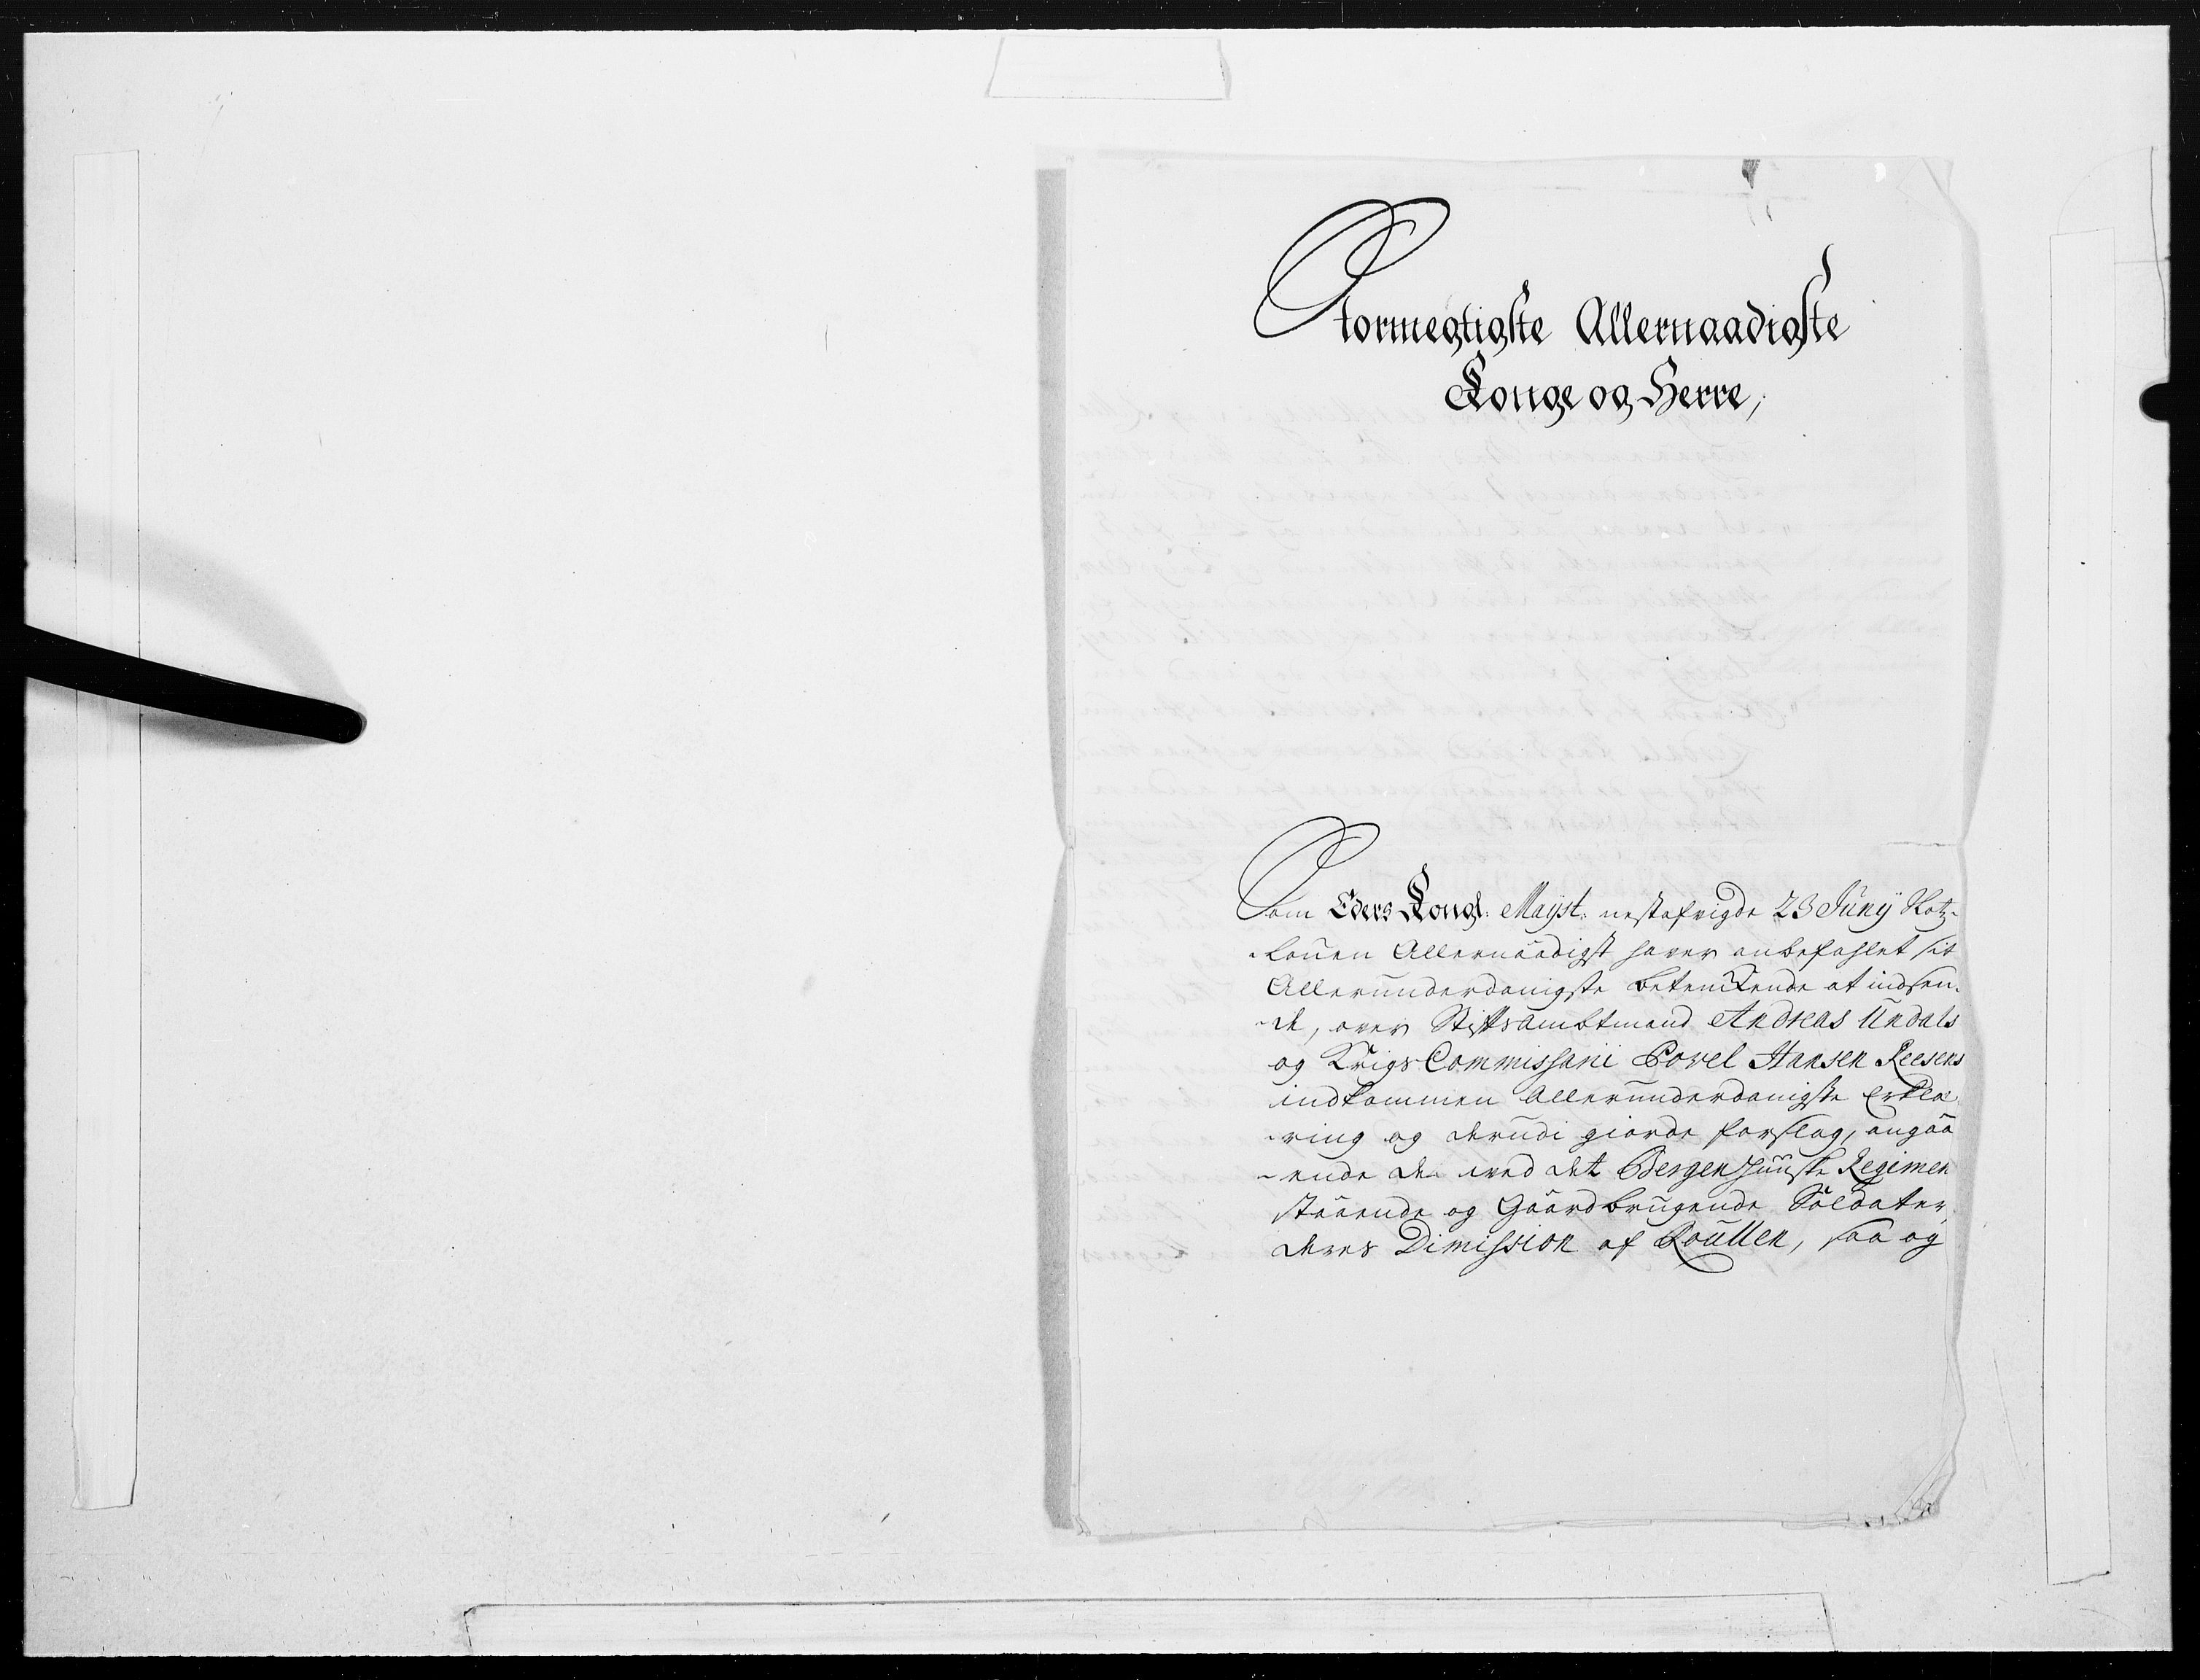 Stormegtigste Allernaadigste
Konge og Herre,
Som Eders Kongl: Mayst: nestafvigde 23 Juny
Allernaadigst haver anbefahlet sit
Allerunderdanigste betenkende at indsen-
-de, over Stiftsambtmand Andreas Undals
og Krigs Commissarii Povel Hansen Reesens
indkommen Allerunderdanigste Erklæ-
-ring og derudi giorde forslag, angaa
-ende de ved det Bergenhuusske Regimen
staaende og Gaardbrugende Soldater,
deres Dimission af Roullen, saa og